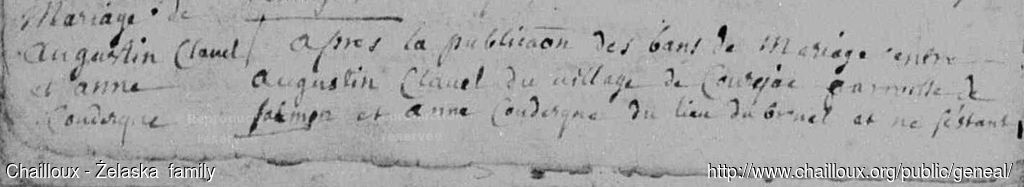 Mariage de
Augustin Clauel
et anne
Couderque
apres la publicaon des bans de Mariage entre
augustin Clauel du uillage de parroisse de
et anne Couderque du lieu du bruel et ne sestant
Chailloux - Żelaska family
http://www.chailloux.org/public/geneal/